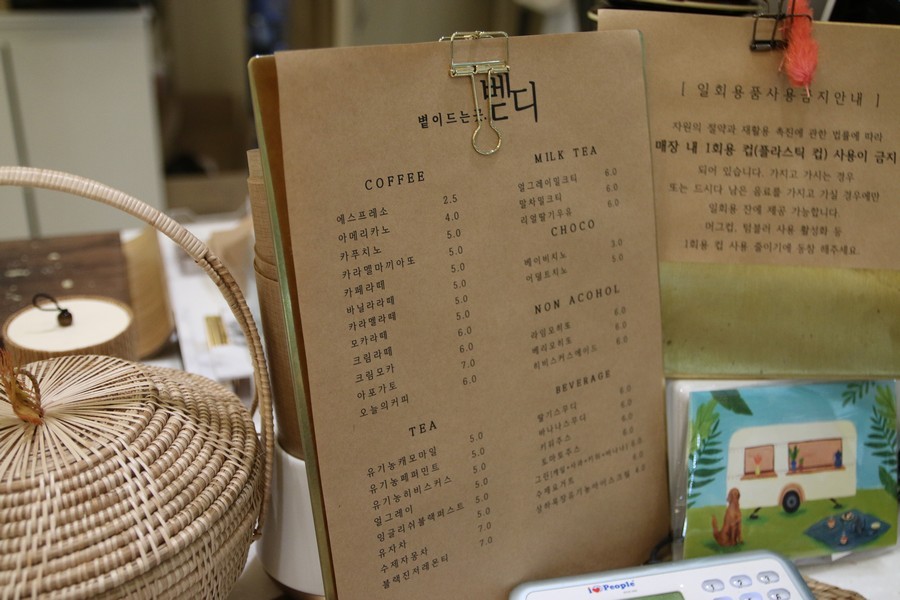 볕이드는곳, 벧디
COFFEE
에스프레소 2.5
아메리카노 4.0
카푸치노 5.0
카라멜마끼아또 5.0
카페라떼 5.0
바닐라라떼 5.0
카라멜라떼 5.0
모카라떼 5.0
크림라떼 6.0
크림모카 6.0
아포가토 7.0
오늘의커피 6.0
TEA
유기농캐모마일 5.0
유기농페퍼민트 5.0
유기농히비스커스 5.0
얼그레이 5.0
잉글리쉬블랙퍼스트 5.0
유자차 5.0
수제자몽차 7.0
블랙진저레몬티 7.0
MILK TEA
얼그레이밀크티 6.0
말차밀크티 6.0
리얼딸기우유 6.0
CHOCO
베이비치노 3.0
어덜트치노 5.0
NON ACOHOL
라임모히토 6.0
베리모히토 6.0
히비스커스에이드 6.0
BEVERAGE
딸기스무디 6.0
바나나스무디 6.0
키위주스 6.0
토마토주스 6.0
수제요거트 6.0
상하목장유기농아이스크림 4.0
[ 일회용품사용금지안내 ]
자원의 절약과 재활용 촉진에 관한 법률에 따라
매장 내 1회용 컵(플라스틱 컵) 사용이 금지
되어 있습니다. 가지고 가시는 경우
또는 드시다 남은 음료를 가지고 가실 경우에만
일회용 잔에 제공 가능합니다.
머그컵, 텀블러 사용 활성화 등
1회용 컵 사용 줄이기에 동참 해주세요.
I ♥ People
1 2 3